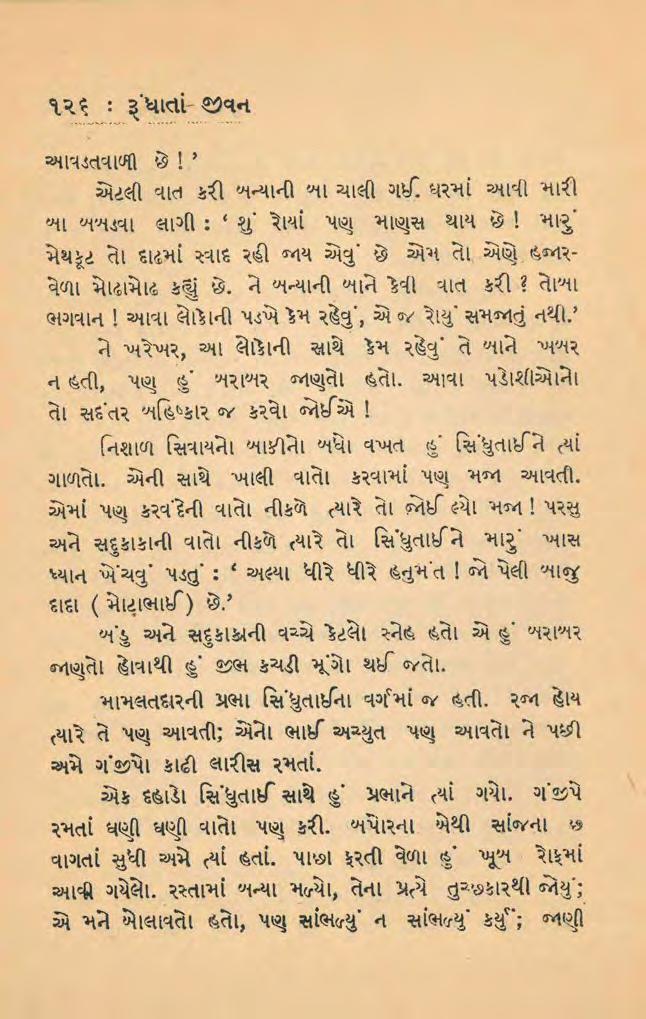 ૧૨૬ : રૂંધાતાં જીવન
આવડતવાળી છે ! ’
એટલી વાત કરી બન્યાની બા ચાલી ગઈ. ઘરમાં આવી મારી
બા બબડવા લાગી : ‘ શું રોયાં પણ માણસ થાય છે ! મારું
મેથકૂટ તો દાઢમાં સ્વાદ રહી જાય એવું છે એમ તો એણે હજાર-
વેળા મોઢામોઢ કહ્યું છે. ને બન્યાની બાને કેવી વાત કરી ? તોબા
ભગવાન ! આવા લોકોની પડખે કેમ રહેવું, એ જ રોયું સમજાતું નથી.’
ને ખરેખર, આ લોકોની સાથે કેમ રહેવું તે બાને ખબર
ન હતી, પણ હું બરાબર જાણતો હતો. આવા પડોશીઓનો
તો સદંતર બહિષ્કાર જ કરવો જોઈએ !
નિશાળ સિવાયનો બાકીનો બધો વખત હું સિંધુતાઈને ત્યાં
ગાળતો. એની સાથે ખાલી વાતો કરવામાં પણ મજા આવતી.
એમાં પણ કરવંદેની વાતો નીકળે ત્યારે તો જોઈ લ્યો મજા ! પરસુ
અને સદુકાકાની વાતો નીકળે ત્યારે તો સિંધુતાઈને મારું ખાસ
ધ્યાન ખેંચવું પડતું : ‘ અલ્યા ધીરે ધીરે હનુમંત ! જો પેલી બાજુ
દાદા ( મોટાભાઈ ) છે.’
બંડુ અને સદુકાકાની વચ્ચે કેટલો સ્નેહ હતો એ હું બરાબર
જાણતો હોવાથી હું જીભ કચડી મૂંગો થઈ જતો.
મામલતદારની પ્રભા સિંધુતાઈના વર્ગમાં જ હતી. રજા હોય
ત્યારે તે પણ આવતી; એનો ભાઈ અચ્યુત પણ આવતો ને પછી
અમે ગંજીપો કાઢી લારીસ રમતાં.
એક દહાડો સિંધુતાઈ સાથે હું પ્રભાને ત્યાં ગયો. ગંજીપે
રમતાં ઘણી ઘણી વાતો પણ કરી. બપોરના બેથી સાંજના છ
વાગતાં સુધી અમે ત્યાં હતાં. પાછા ફરતી વેળા હું ખૂબ રોફમાં
આવી ગયેલો. રસ્તામાં બન્યા મળ્યો, તેના પ્રત્યે તુચ્છકારથી જોયું;
એ મને બોલાવતો હતો, પણ સાંભળ્યું ન સાંભળ્યું કર્યું; જાણી